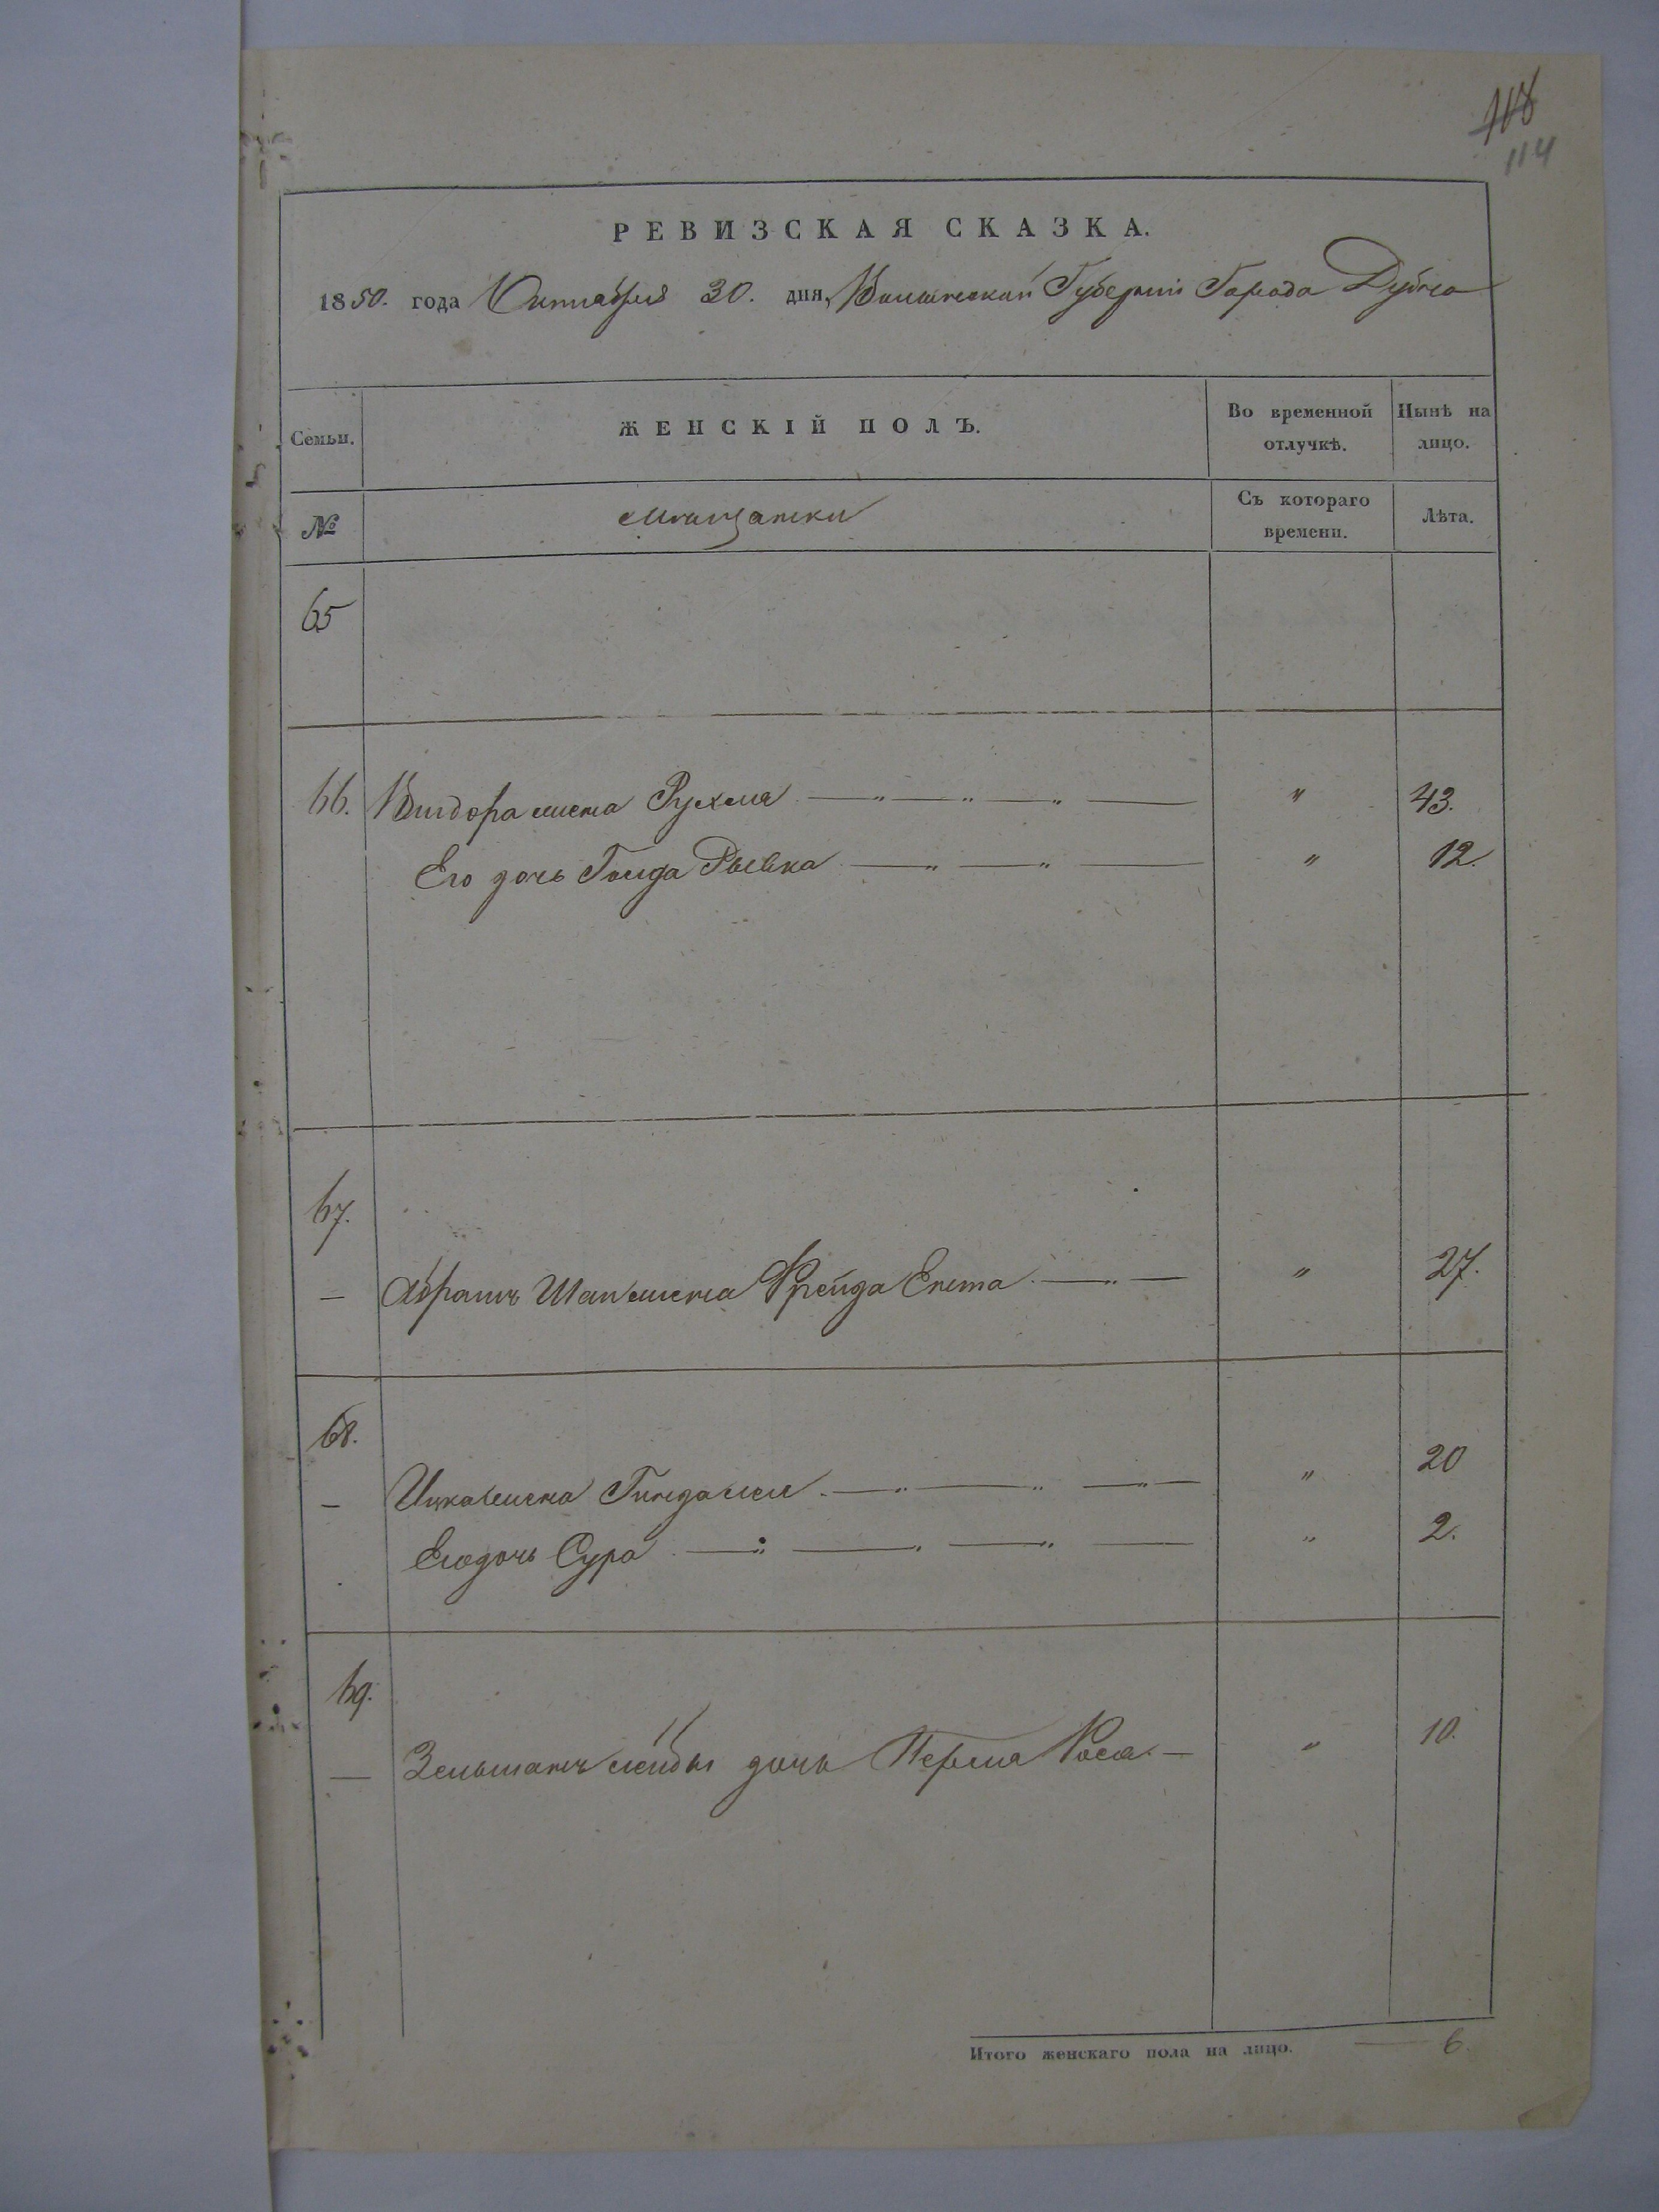 118
114
РЕВИЗСКАЯ СКАЗКА.
1850. года Октября 30. дня, Волынской Губернiи Города Дубна
Семьи.
ЖЕНСКІЙ ПОЛЪ.
Во временной отлучкѣ.
Нынѣ на лицо.
№
мѣщанки
Съ котораго времени.
Лѣта.
65
66. Вигдора жена Рухля — „ — „ — „ — „ 43.
Его дочь Голда Рывка — „ — „ — „ 12.
67.
— Абрамъ Шаи жена Фрейда Ента — „ — „ 27.
68.
— Ицка жена — „ — „ — „ — „ 20
Его дочь Сура — „ — „ — „ — „ 2.
69.
— дочь Перля Роса — „ 10.
Итого женскаго пола на лицо. — 6.